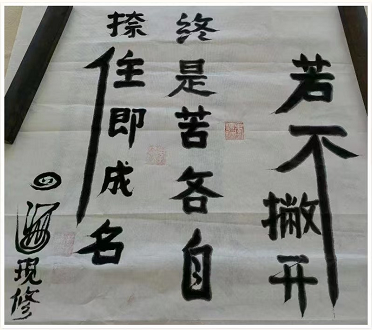 若不撇开
终是苦各自
捺住即成名
現修